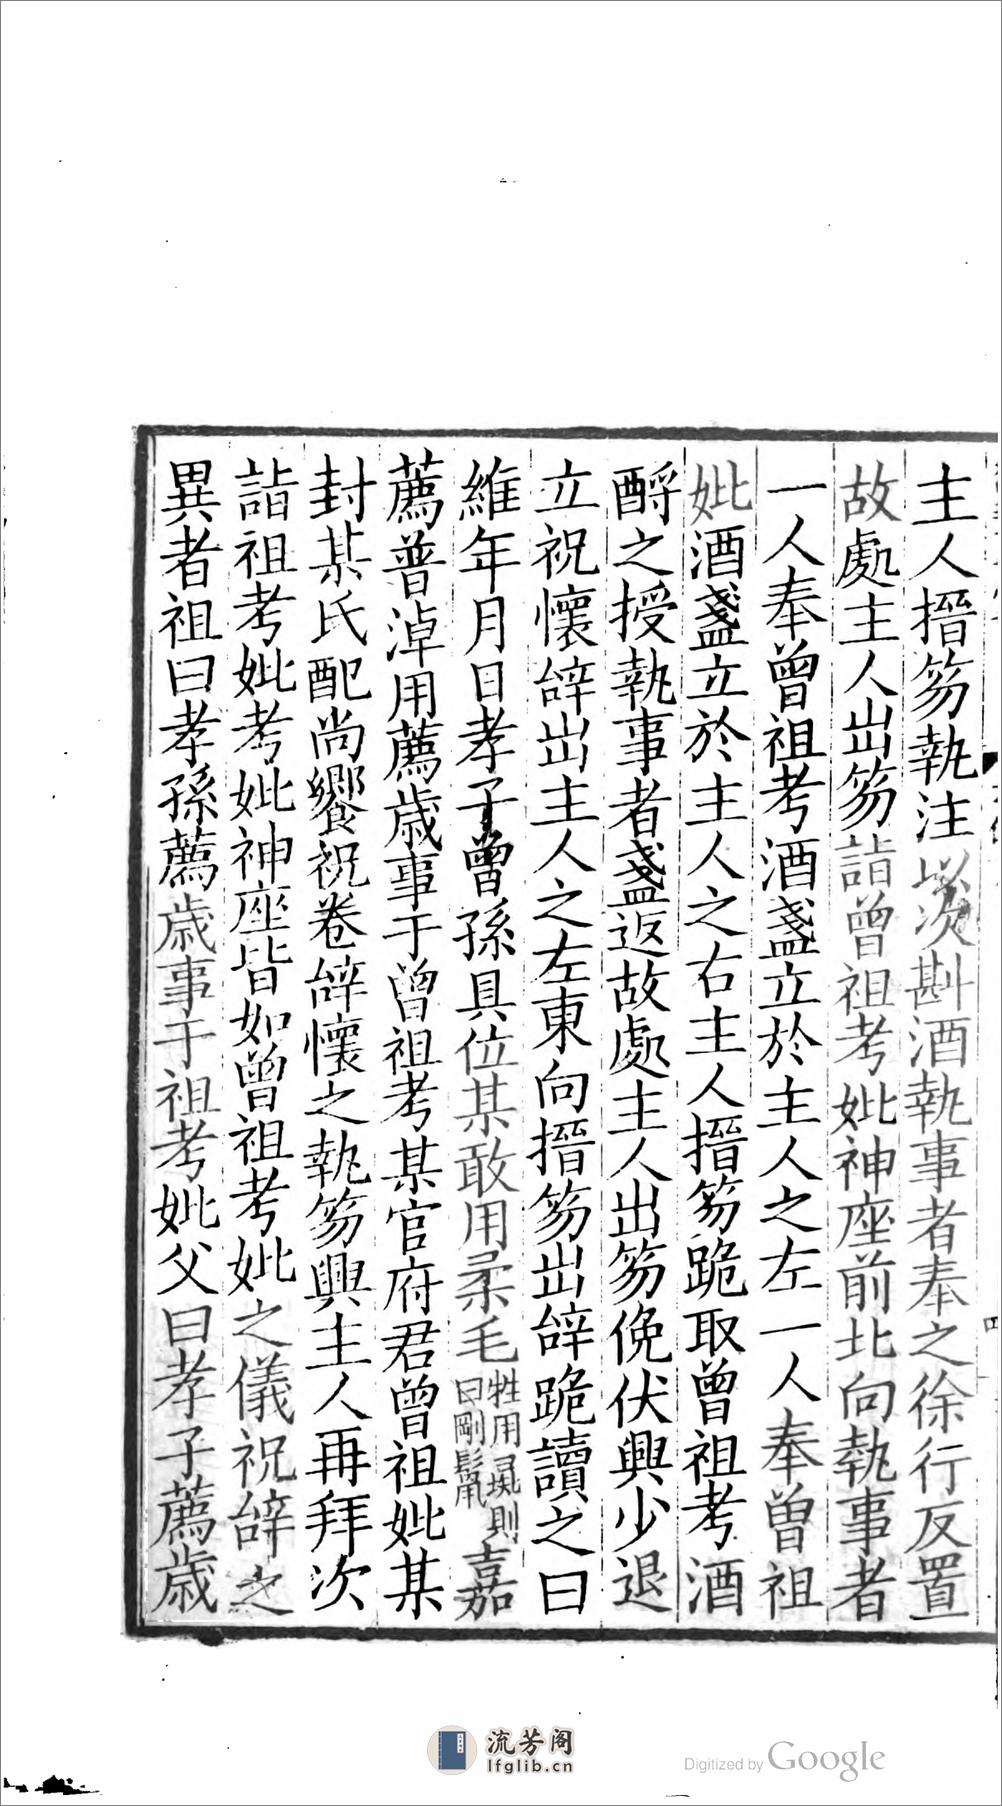 主人搢笏執注以次斟酒執事者奉之徐行反置
故處主人出笏詣曾祖考妣神座前北向執事者
一人奉曾祖考酒盞立於主人之左一人奉曾祖
妣酒盞立於主人之右主人搢笏跪取曾祖考酒
酹之授執事者盞返故處主人出笏俛伏興少退
立祝懷辝出主人之左東向搢笏出辝跪讀之曰
維年月日孝子曾孫具位某敢用柔毛牲用彘則曰剛鬛嘉
薦普淖用薦歲事于曾祖考某官府君曾祖妣某
封某氏配尚饗祝卷辝懷之執笏興主人再拜次
詣祖考妣考妣神座皆如曾祖考妣之儀祝辝之
異者祖曰孝孫薦歲事于祖考妣父曰孝子薦歲
流芳阁
lfglib.cn
Digitized by Google